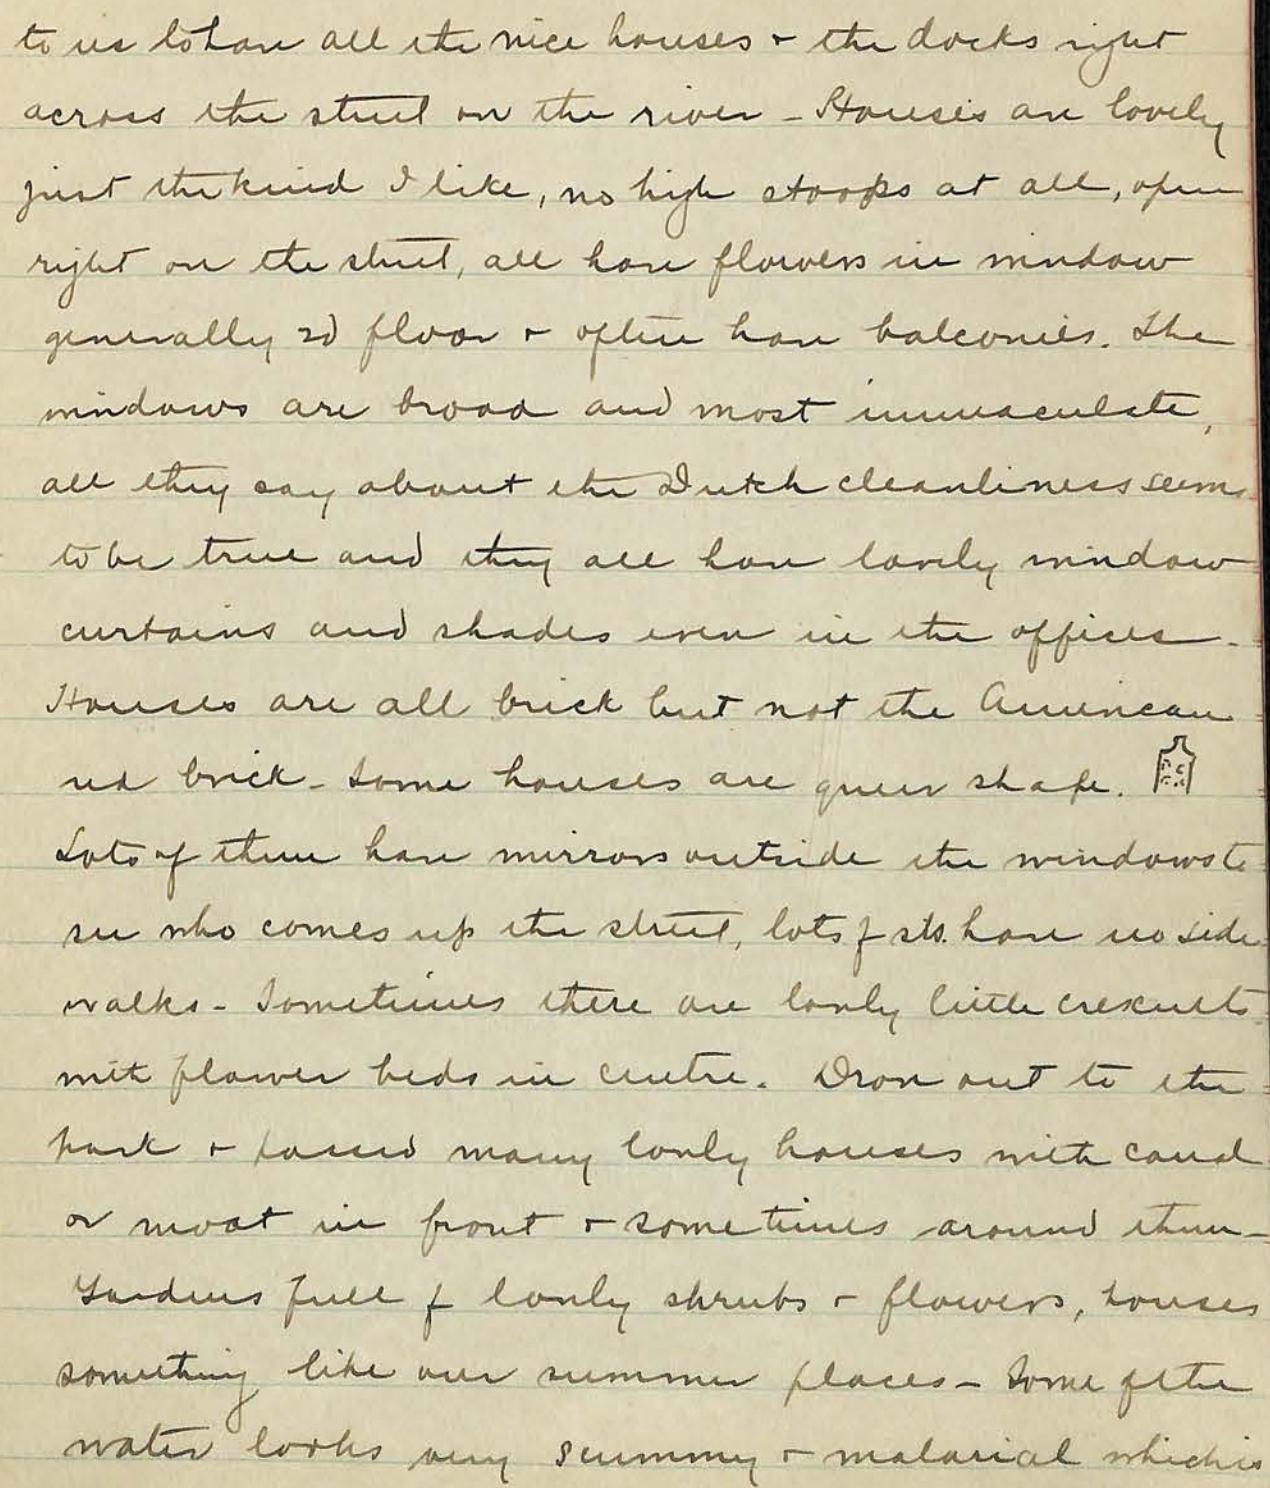 to us to have all the nice houses + the docks right
across the street on the river - Houses are lovely
just the kind I like, no high stoops at all, open
right on the street, all have flowers in window
generally 2d floor + often have balconies. The
windows are broad and most immaculate,
all they say about the Dutch cleanliness seems
to be true and they all have lovely window
curtains and shades even in the offices -
Houses are all brick but not the American
red brick - Some houses are queer shape.
Lots of them have mirrors outside the windows to
see who comes up the street, lots of sts. have no side
walks - Sometimes there are lovely little crescents
with flower beds in centre. Drove out to the
park + passed many lovely houses with canal
or moat in front + sometimes around them -
Gardens full of lovely shrubs + flowers, houses
something like our summer places - Some of the
water looks very scummy + malarial which is